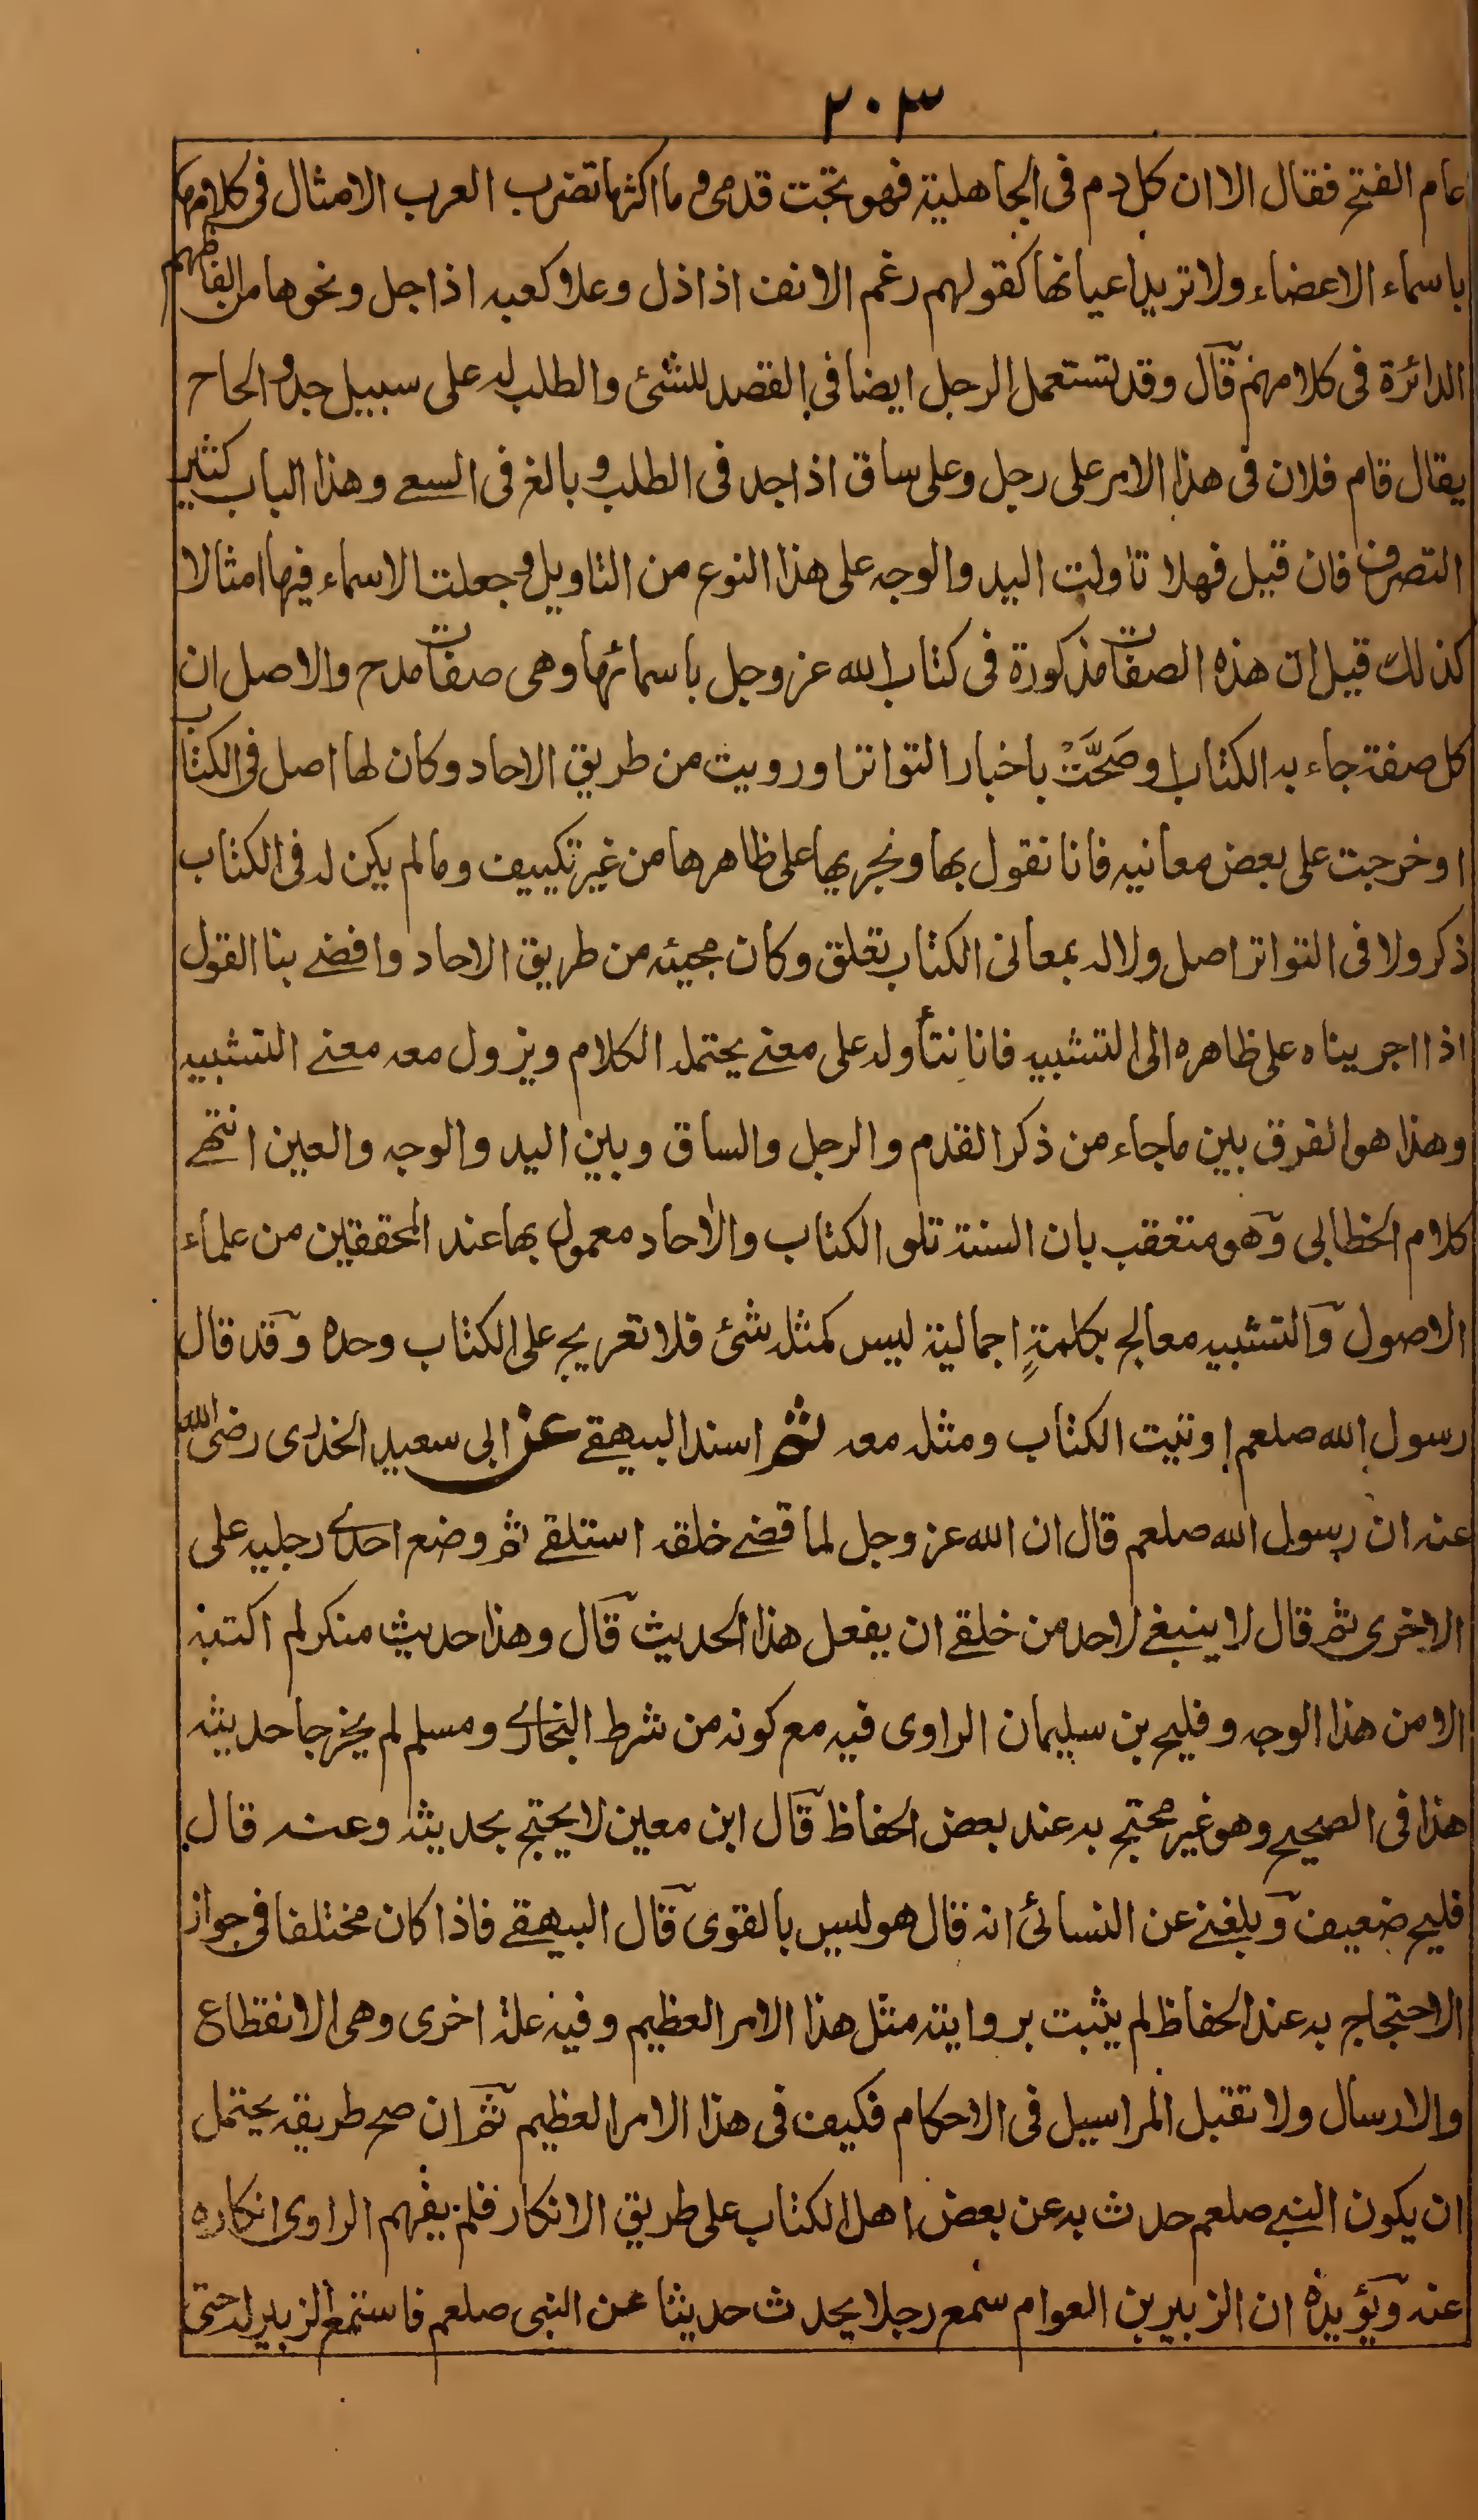 ٢٠٣
عام الفتح فقال الا ان كل دم فى الجاهلية فهو تحت قدمى وما اكثر ما تضرب العرب الامثال فى كلامها
باسماء الاعضاء ولا تريد اعيانها كقولهم رغم الانف اذا ذل وعلا كعبه اذا جل ونحوها من الفاظهم
الدائرة فى كلامهم قال وقد تستعمل الرجل ايضا فى القصد للشئ والطلب له على سبيل جد والحاح
يقال قام فلان فى هذا الامر على رجل وعلى ساق اذا جد فى الطلب وبالغ فى السعے وهذا الباب كثير
التصرف فان قيل فهلا تأولت اليد والوجه على هذا النوع من التاويل وجعلت الاسماء فيها امثالا
كذلك قيل ان هذه الصفات مذكورة فى كتاب الله عز وجل باسمائها وهى صفات مدح والاصل ان
كل صفة جاء به الكتاب او صَحَّتْ باخبار التواتر او رويت من طريق الاحاد وكان لها اصل فى الكتاب
او خرجت على بعض معانيه فانا نقول بها ونجريها على ظاهرها من غير تكييف وما لم يكن له فى الكتاب
ذكر ولا فى التواتر اصل ولا له بمعانى الكتاب تعلق وكان مجيئه من طريق الاحاد وافضے بنا القول
اذا اجريناه على ظاهره الى التشبيه فانا نتأوله على معنے يحتمله الكلام ويزول معه معنے التشبيه
وهذا هو الفرق بين ما جاء من ذكر القدم والرجل والساق وبين اليد والوجه والعين انتهے
كلام الخطابى وهو متعقب بان السنة تلو الكتاب والاحاد معمول بها عند المحققين من علماء
الاصول والتشبيه معالج بكلمةٍ اجمالية ليس كمثله شئ فلا تعريج على الكتاب وحده وقد قال
رسول الله صلعم اوتيت الكتاب ومثله معه ثم اسند البيهقے عن ابى سعيد الخدرى رضى الله
عنه ان رسول الله صلعم قال ان الله عز وجل لما قضے خلقه استلقے ثم وضع احدے رجليه على
الاخرى ثم قال لا ينبغے لاحد من خلقے ان يفعل هذا الحديث قال وهذا حديث منكر لم اكتبه
الا من هذا الوجه وفليح بن سليمان الراوى فيه مع كونه من شرط البخارے ومسلم لم يخرجا حديثه
هذا فى الصحيح وهو غير محتج به عند بعض الحفاظ قال ابن معين لا يحتج بحديثه وعنه قال
فليح ضعيف وبلغنے عن النسائى انه قال هو ليس بالقوى قال البيهقے فاذا كان مختلفا فى جواز
الاحتجاج به عند الحفاظ لم يثبت بروايته مثل هذا الامر العظيم وفيه علة اخرى وهى الانقطاع
والارسال ولا تقبل المراسيل فى الاحكام فكيف فى هذا الامر العظيم ثم ان صح طريقه يحتمل
ان يكون النبے صلعم حدث به عن بعض اهل الكتاب على طريق الانكار فلم يفهم الراوى انكاره
عنه ويؤيده ان الزبير بن العوام سمع رجلا يحدث حديثا عن النبى صلعم فاستمع الزبير له حتى